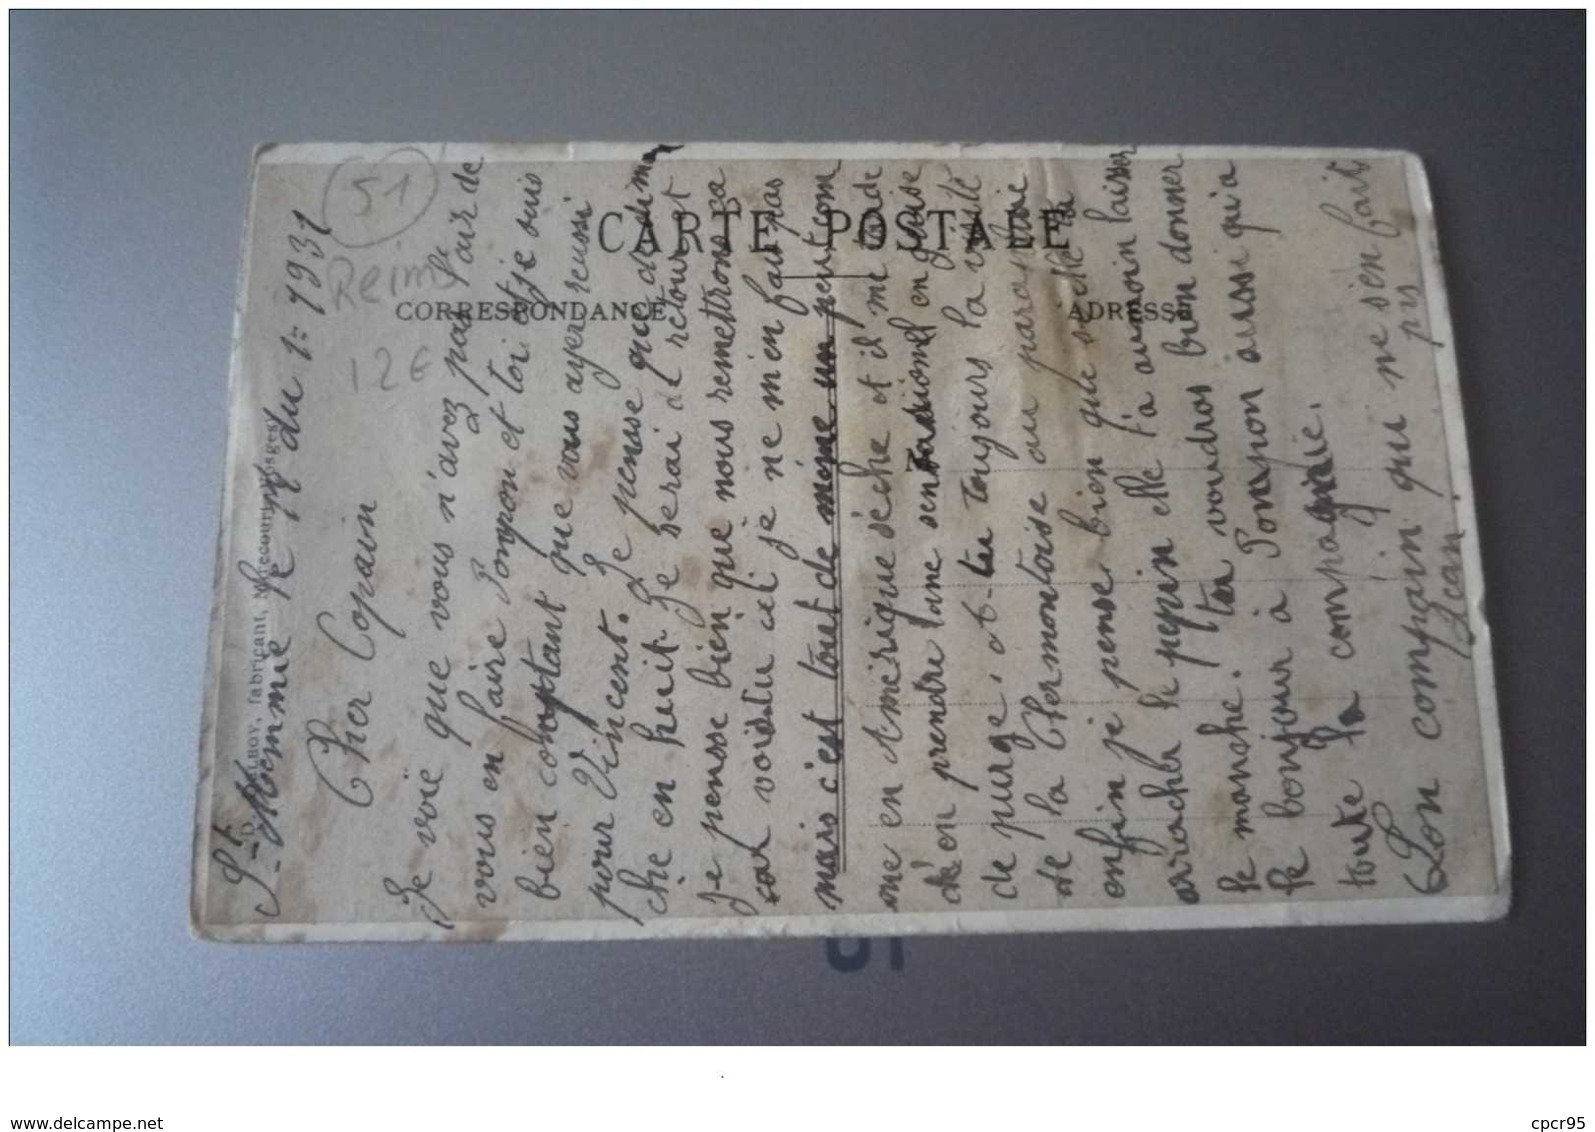 CARTE POSTALE
CORRESPONDANCE
ADRESSE
D. DELBOY, fabricant, Mirecourt (Vosges)
51
Reims
12€
St Memmie le 17 du 1= 1931
Cher Copain
Je voie que vous n'avez pas l'air de
vous en faire Pompon et toi et je suis
bien comptant que vous ayer reussi
pour Vincent. Je pensse que dediman
che en huit Je serai de retour et
Je pensse bien que nous remettrons ça
car voistu ici je ne m'en fait pas
mais c'est tout de même un peut com
me en Amérique séche et il me tarde
d'en prendre une en guise
de purge. et tu Toujours la vérité
de la Clermontoise au parapluie
enfin je pense bien que si elle ta
arracher le pepin elle t'a aumoin laisser
le manche. tu voudras bien donner
le bonjour à Pompon aussi qu'a
toute la compagnie.
Ton compain qui ne s'en fait
pas
Jean
www.delcampe.net
cpcr95